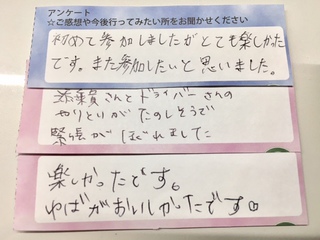 アンケート
☆ご感想や今後行ってみたい所をお聞かせください
初めて参加しましたがとても楽しかった
です。また参加したいと思いました。
添乗員さんとドライバーさんの
やりとりがたのしそうで
緊張がほぐれました
楽しかったです。
ゆばがおいしかったです♡